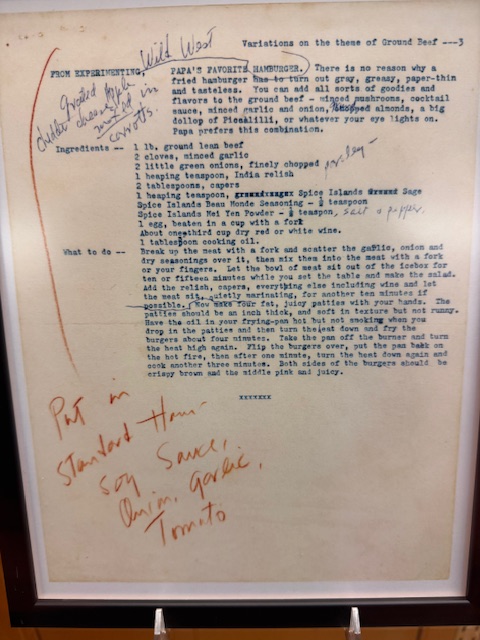 Variations on the theme of Ground Beef ---3
Wild West
FROM EXPERIMENTING, PAPA'S FAVORITE HAMBURGER. There is no reason why a
fried hamburger has to turn out gray, greasy, paper-thin
and tasteless. You can add all sorts of goodies and
flavors to the ground beef - minced mushrooms, cocktail
sauce, minced garlic and onion, chopped almonds, a big
dollop of Piccalilli, or whatever your eye lights on.
Papa prefers this combination.
grated apple
cheddar cheese
mixed in
carrots.
Ingredients -- 1 lb. ground lean beef
2 cloves, minced garlic
2 little green onions, finely chopped parsley
1 heaping teaspoon, India relish
2 tablespoons, capers
1 heaping teaspoon, Spice Islands Sage
Spice Islands Beau Monde Seasoning - ½ teaspoon
Spice Islands Mei Yen Powder - ½ teaspon, salt & pepper.
1 egg, beaten in a cup with a fork
About one third cup dry red or white wine.
1 tablespoon cooking oil.
What to do -- Break up the meat with a fork and scatter the garlic, onion and
dry seasonings over it, then mix them into the meat with a fork
or your fingers. Let the bowl of meat sit out of the icebox for
ten or fifteen minutes while you set the table and make the salad.
Add the relish, capers, everything else including wine and let
the meat sit, quietly marinating, for another ten minutes if
possible. Now make four fat, juicy patties with your hands. The
patties should be an inch thick, and soft in texture but not runny.
Have the oil in your frying-pan hot but not smoking when you
drop in the patties and then turn the heat down and fry the
burgers about four minutes. Take the pan off the burner and turn
the heat high again. Flip the burgers over, put the pan back on
the hot fire, then after one minute, turn the heat down again and
cook another three minutes. Both sides of the burgers should be
crispy brown and the middle pink and juicy.
xxxxxxx
Put in
Standard Ham-
Soy Sauce,
Onion, Garlic,
Tomato